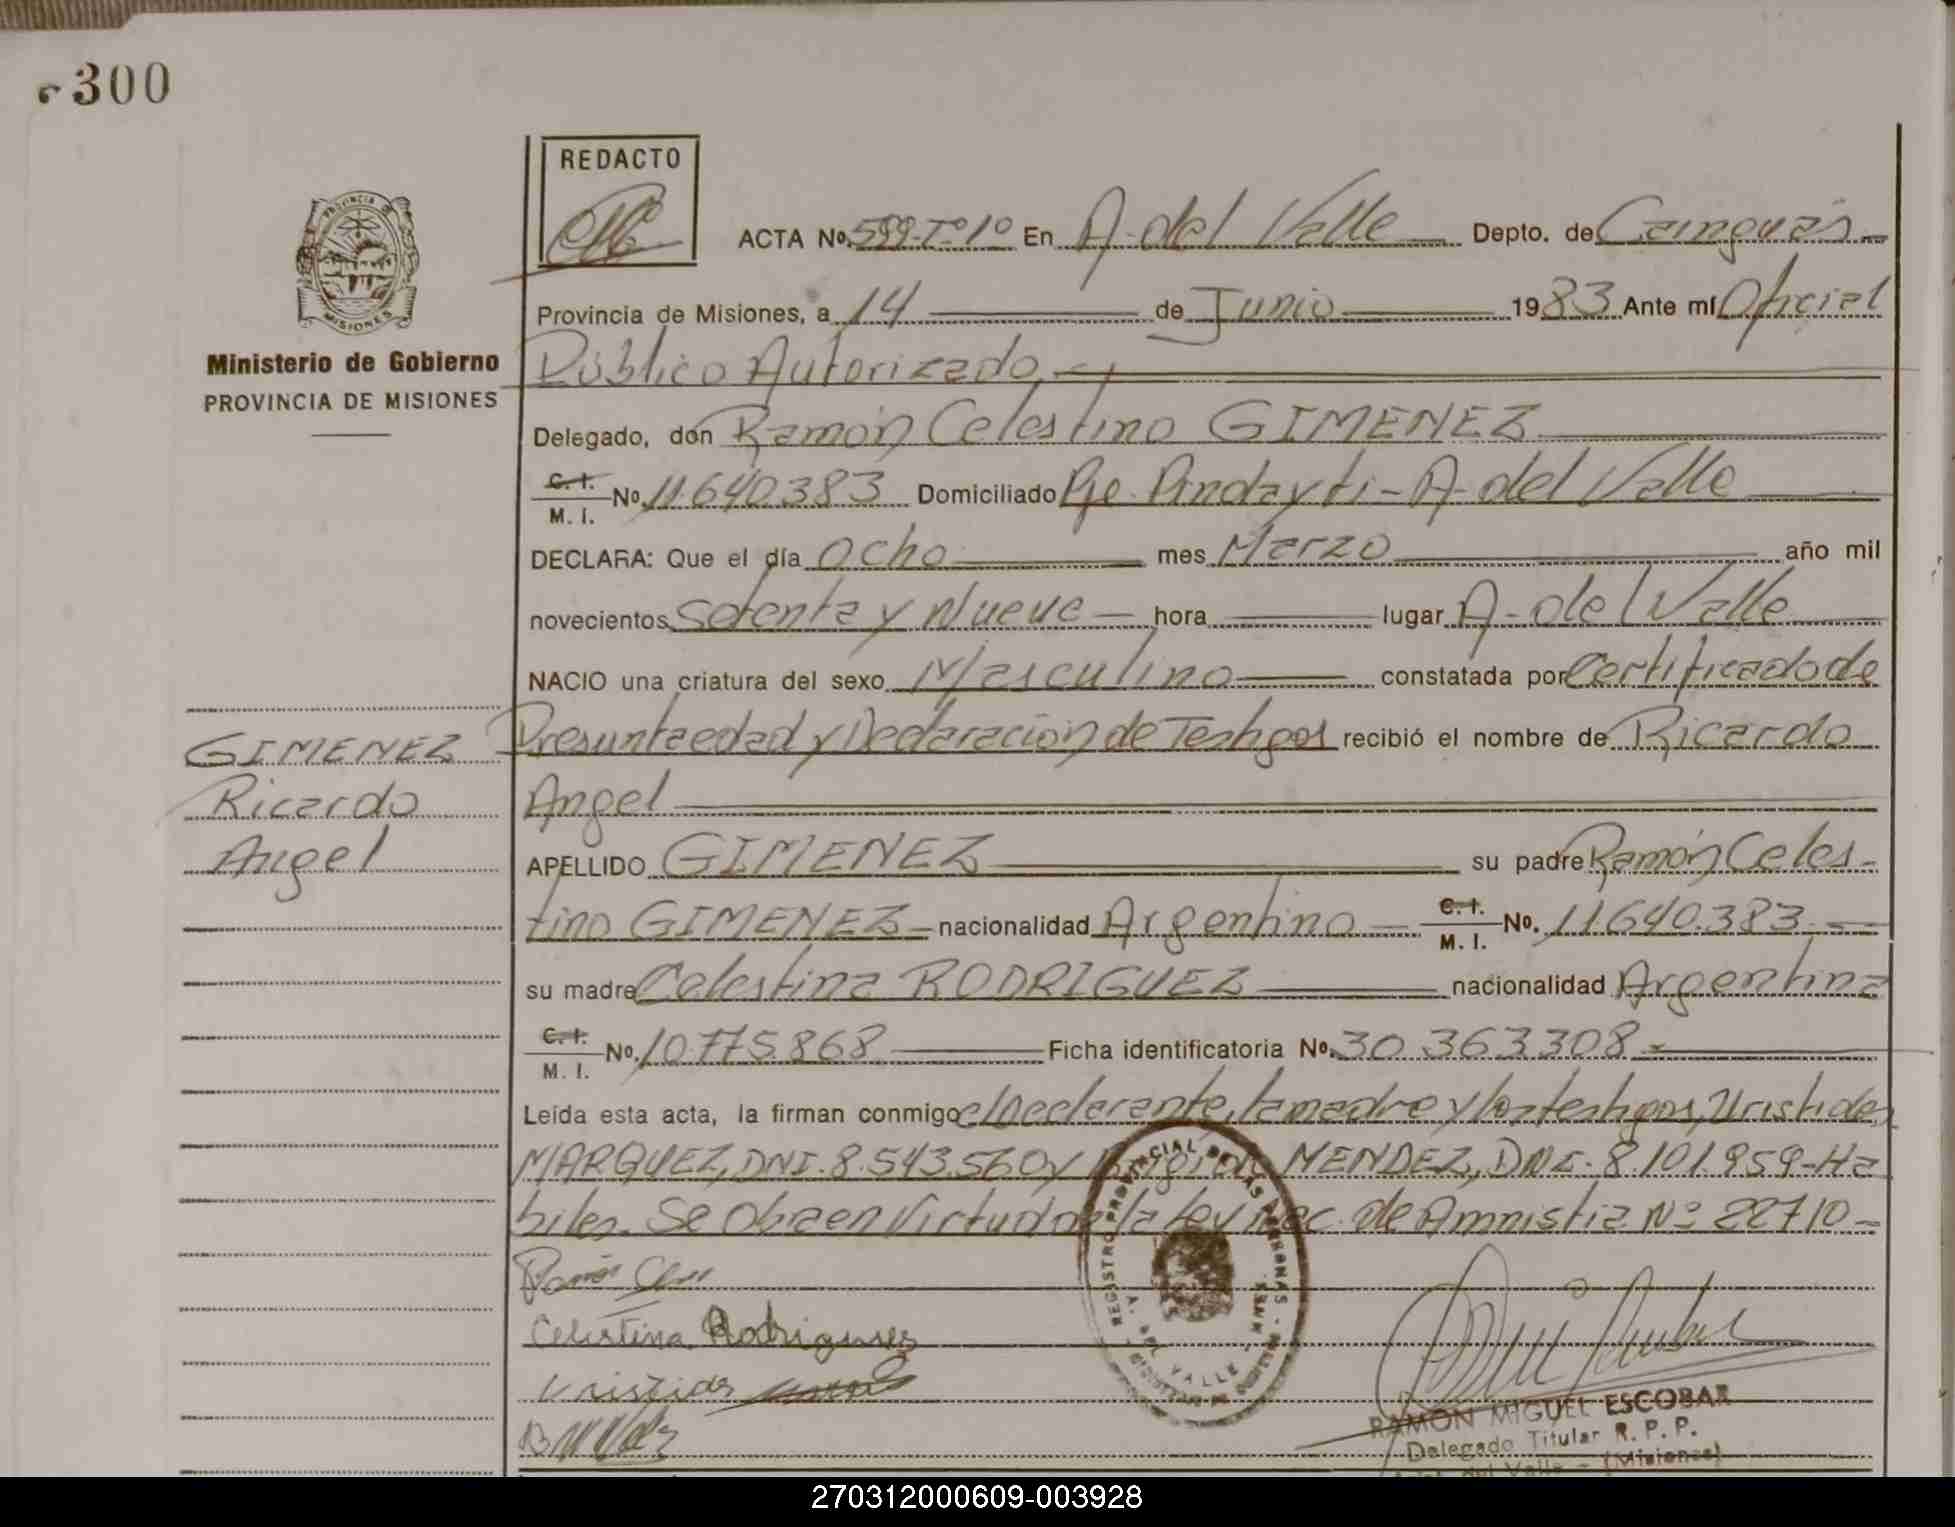 300
REDACTO
ACTA No. 599-Tº1º En A. del Valle Depto. de Cainguás
Provincia de Misiones, a 14 de Junio 1983 Ante mí Oficial
Público Autorizado
Ministerio de Gobierno
PROVINCIA DE MISIONES
Delegado, don Ramón Celestino GIMENEZ
C. I. M. I. No. 11.640.383 Domiciliado Pje. Pindayti - A. del Valle
DECLARA: Que el día ocho mes Marzo año mil
novecientos setenta y Nueve hora lugar A. del Valle
NACIO una criatura del sexo Masculino constatada por Certificado de
Presunta edad y Declaración de Testigos recibió el nombre de Ricardo
Angel
GIMENEZ
Ricardo
Angel
APELLIDO GIMENEZ su padre Ramón Celes-
tino GIMENEZ nacionalidad Argentino C. I. M. I. No. 11.640.383
su madre Celestina RODRIGUEZ nacionalidad Argentina
C. I. M. I. No. 10.775.868 Ficha identificatoria No. 30.363.308
Leída esta acta, la firman conmigo el Declarante, la madre y los testigos, Uristides
MARQUEZ, DNI. 8.543.560 y MENDEZ, DNI. 8.101.959-Ha
biles. Se obra en Virtud de la Ley Nac. de Amnistia Nº 22710-
Ramón
Celestina Rodriguez
Uristides
REGISTRO PROVINCIAL DE LAS PERSONAS
A. DEL VALLE
RAMON MIGUEL ESCOBAR
Delegado Titular R. P. P.
del Valle - (Misiones)
270312000609-003928